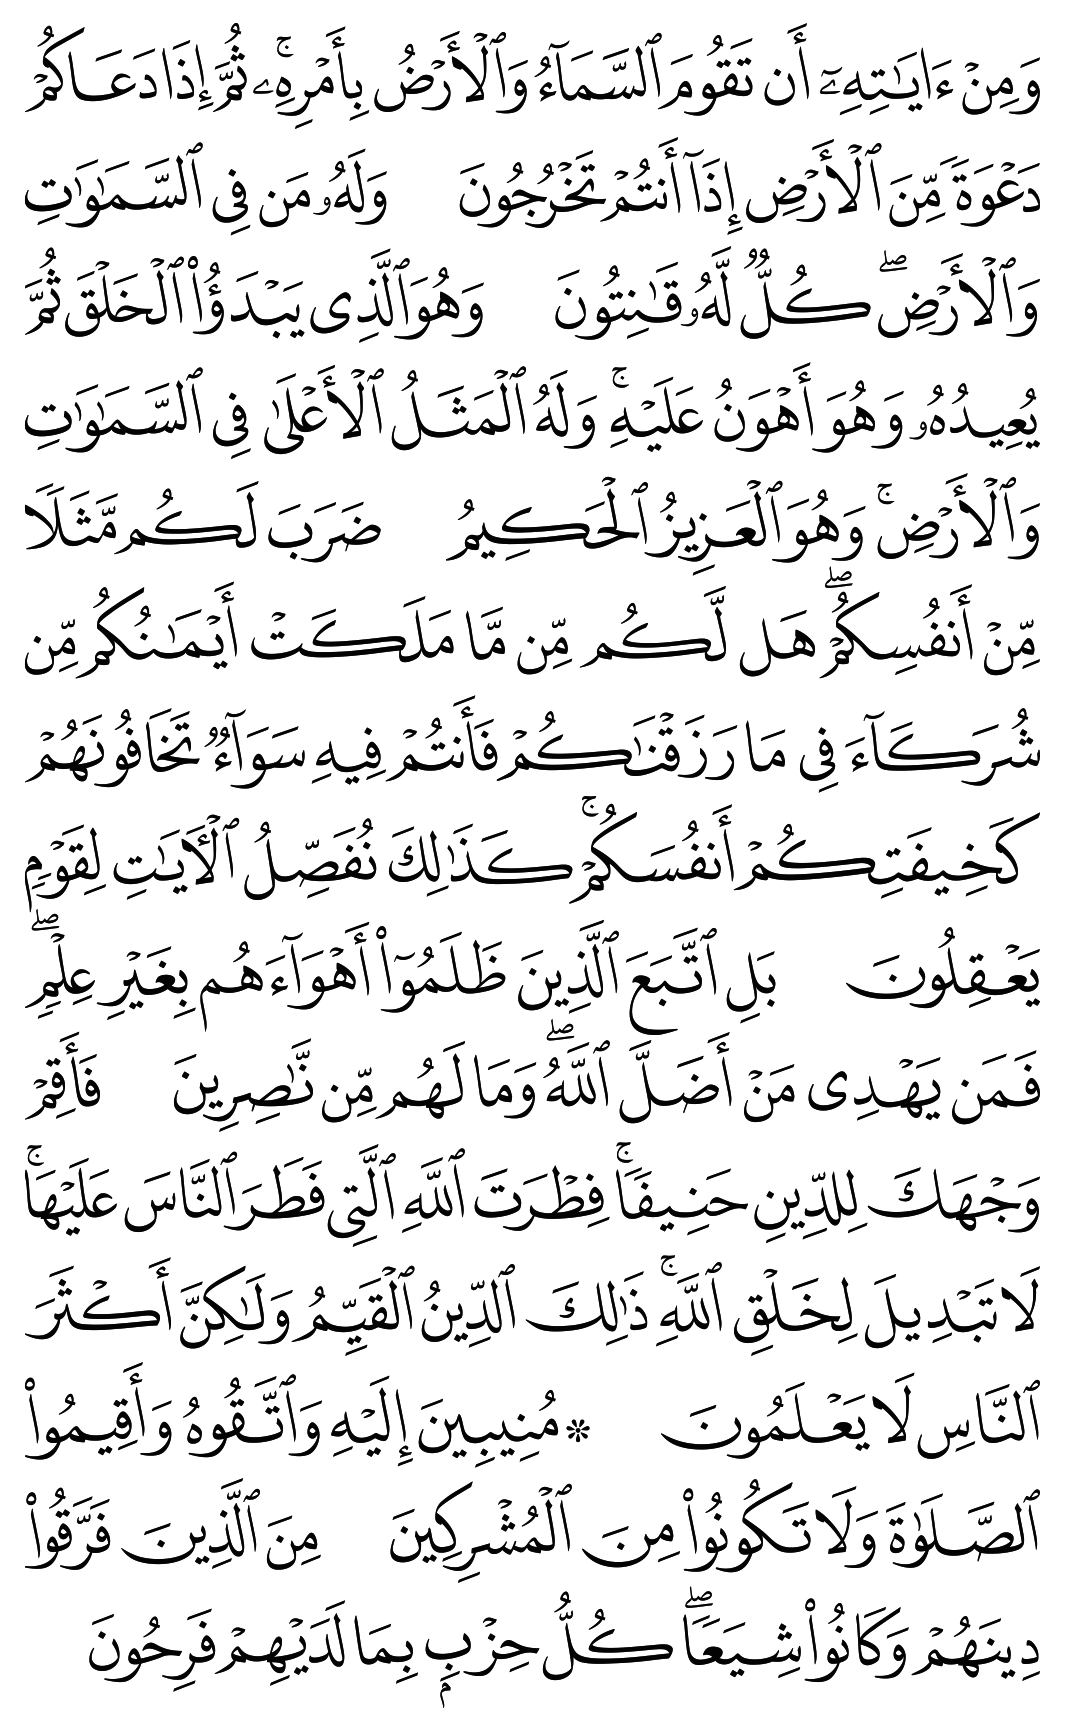 وَمِنۡ ءَايَٰتِهِۦٓ أَن تَقُومَ ٱلسَّمَآءُ وَٱلۡأَرۡضُ بِأَمۡرِهِۦۚ ثُمَّ إِذَا دَعَاكُمۡ
دَعۡوَةٗ مِّنَ ٱلۡأَرۡضِ إِذَآ أَنتُمۡ تَخۡرُجُونَ وَلَهُۥ مَن فِي ٱلسَّمَٰوَٰتِ
وَٱلۡأَرۡضِۖ كُلّٞ لَّهُۥ قَٰنِتُونَ وَهُوَ ٱلَّذِي يَبۡدَؤُاْ ٱلۡخَلۡقَ ثُمَّ
يُعِيدُهُۥ وَهُوَ أَهۡوَنُ عَلَيۡهِۚ وَلَهُ ٱلۡمَثَلُ ٱلۡأَعۡلَىٰ فِي ٱلسَّمَٰوَٰتِ
وَٱلۡأَرۡضِۚ وَهُوَ ٱلۡعَزِيزُ ٱلۡحَكِيمُ ضَرَبَ لَكُم مَّثَلٗا
مِّنۡ أَنفُسِكُمۡۖ هَل لَّكُم مِّن مَّا مَلَكَتۡ أَيۡمَٰنُكُم مِّن
شُرَكَآءَ فِي مَا رَزَقۡنَٰكُمۡ فَأَنتُمۡ فِيهِ سَوَآءٞ تَخَافُونَهُمۡ
كَخِيفَتِكُمۡ أَنفُسَكُمۡۚ كَذَٰلِكَ نُفَصِّلُ ٱلۡأٓيَٰتِ لِقَوۡمٖ
يَعۡقِلُونَ بَلِ ٱتَّبَعَ ٱلَّذِينَ ظَلَمُوٓاْ أَهۡوَآءَهُم بِغَيۡرِ عِلۡمٖۖ
فَمَن يَهۡدِي مَنۡ أَضَلَّ ٱللَّهُۖ وَمَا لَهُم مِّن نَّٰصِرِينَ فَأَقِمۡ
وَجۡهَكَ لِلدِّينِ حَنِيفٗاۚ فِطۡرَتَ ٱللَّهِ ٱلَّتِي فَطَرَ ٱلنَّاسَ عَلَيۡهَاۚ
لَا تَبۡدِيلَ لِخَلۡقِ ٱللَّهِۚ ذَٰلِكَ ٱلدِّينُ ٱلۡقَيِّمُ وَلَٰكِنَّ أَكۡثَرَ
ٱلنَّاسِ لَا يَعۡلَمُونَ ۞ مُنِيبِينَ إِلَيۡهِ وَٱتَّقُوهُ وَأَقِيمُواْ
ٱلصَّلَوٰةَ وَلَا تَكُونُواْ مِنَ ٱلۡمُشۡرِكِينَ مِنَ ٱلَّذِينَ فَرَّقُواْ
دِينَهُمۡ وَكَانُواْ شِيَعٗاۖ كُلُّ حِزۡبِۭ بِمَا لَدَيۡهِمۡ فَرِحُونَ